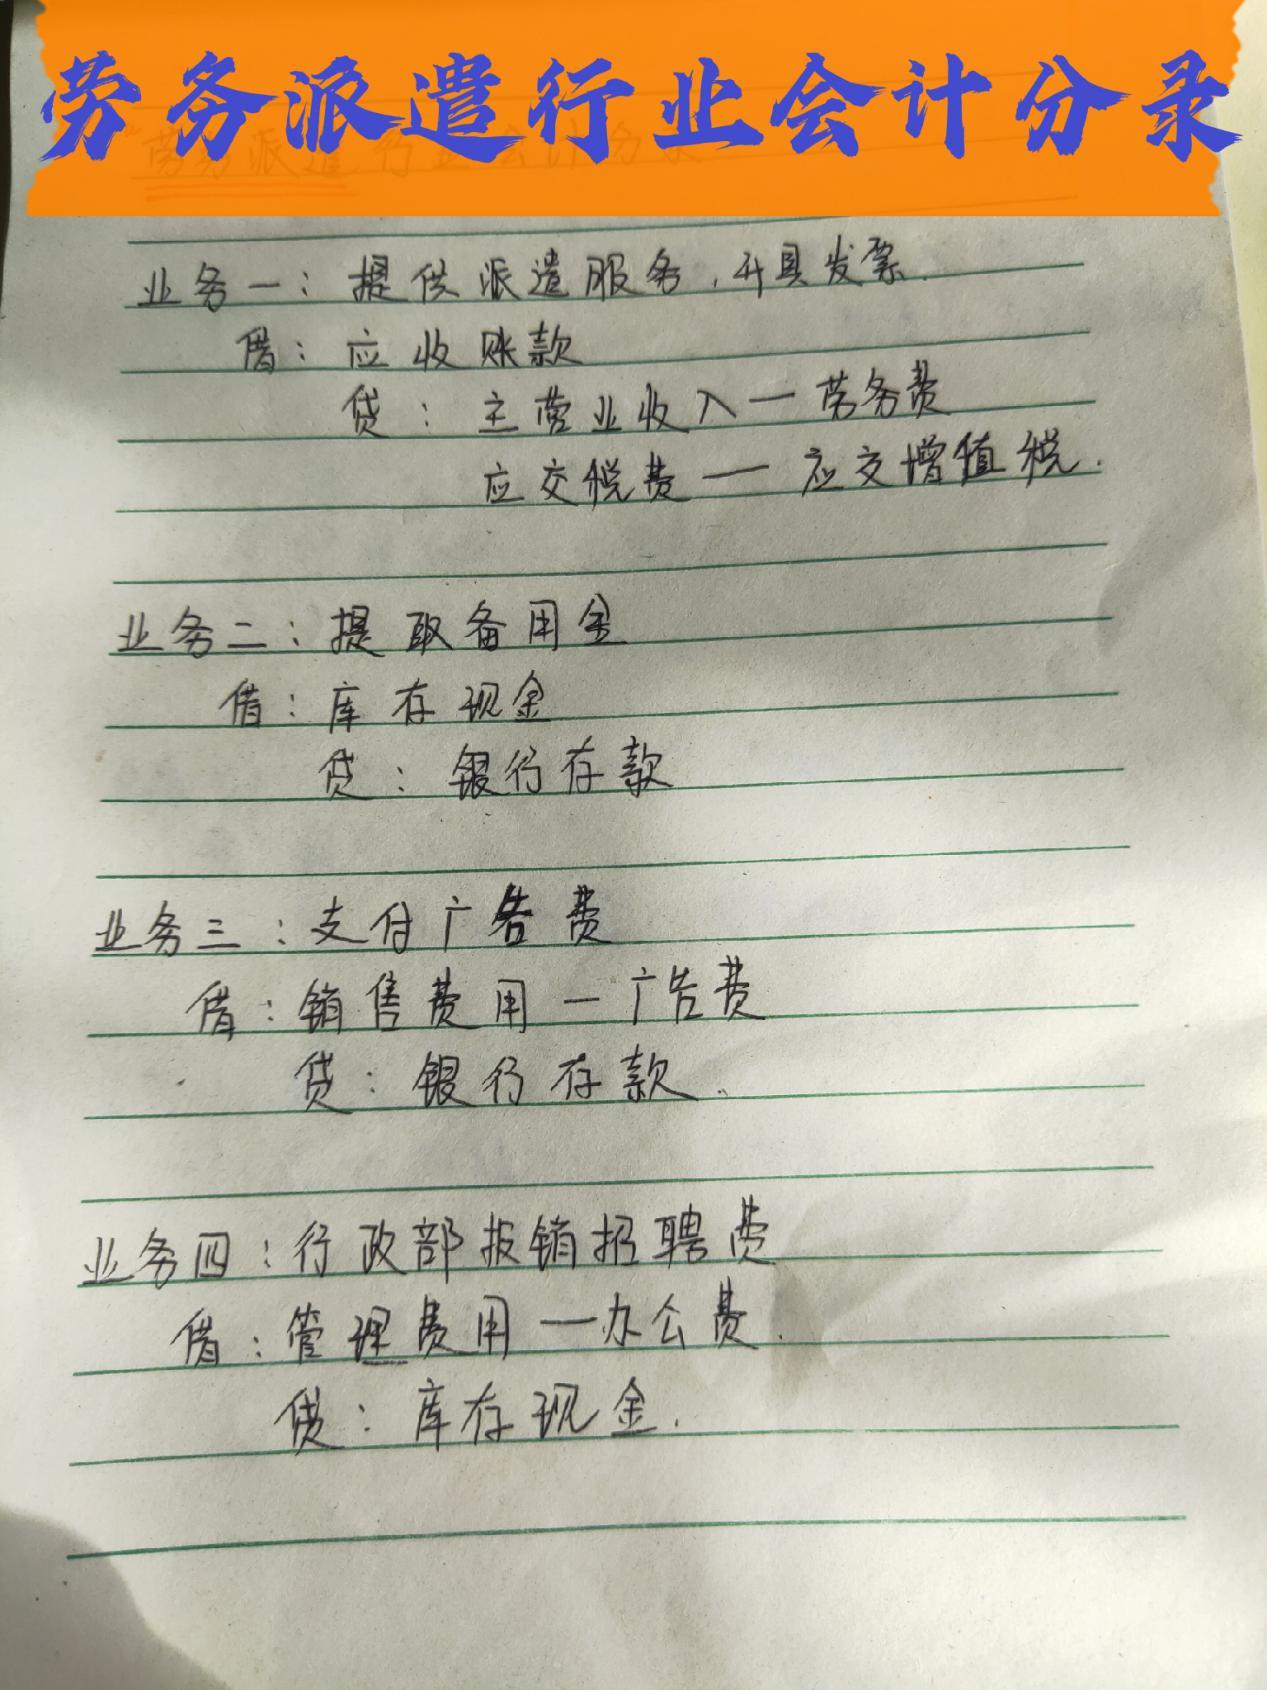 劳务派遣行业会计分录
业务一：提供派遣服务，开具发票.
借：应收账款
贷：主营业收入一劳务费
应交税费一应交增值税.
业务二：提取备用金
借：库存现金
贷：银行存款
业务三：支付广告费
借：销售费用一广告费
贷：银行存款.
业务四：行政部报销招聘费
借：管理费用一办公费.
贷：库存现金.